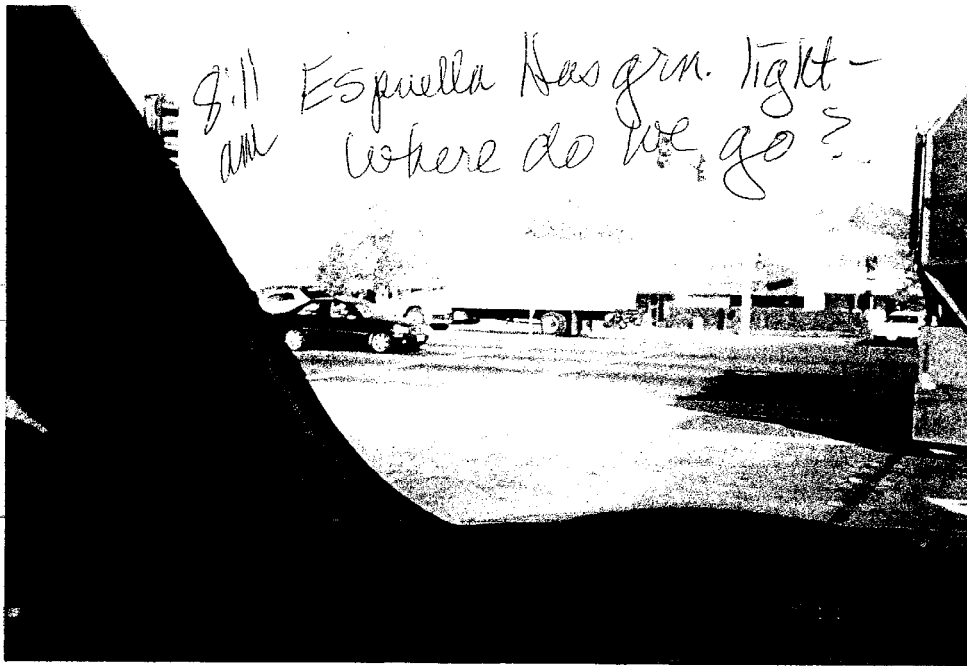 8:11 Espuella Has grn. light -
am where do we go?